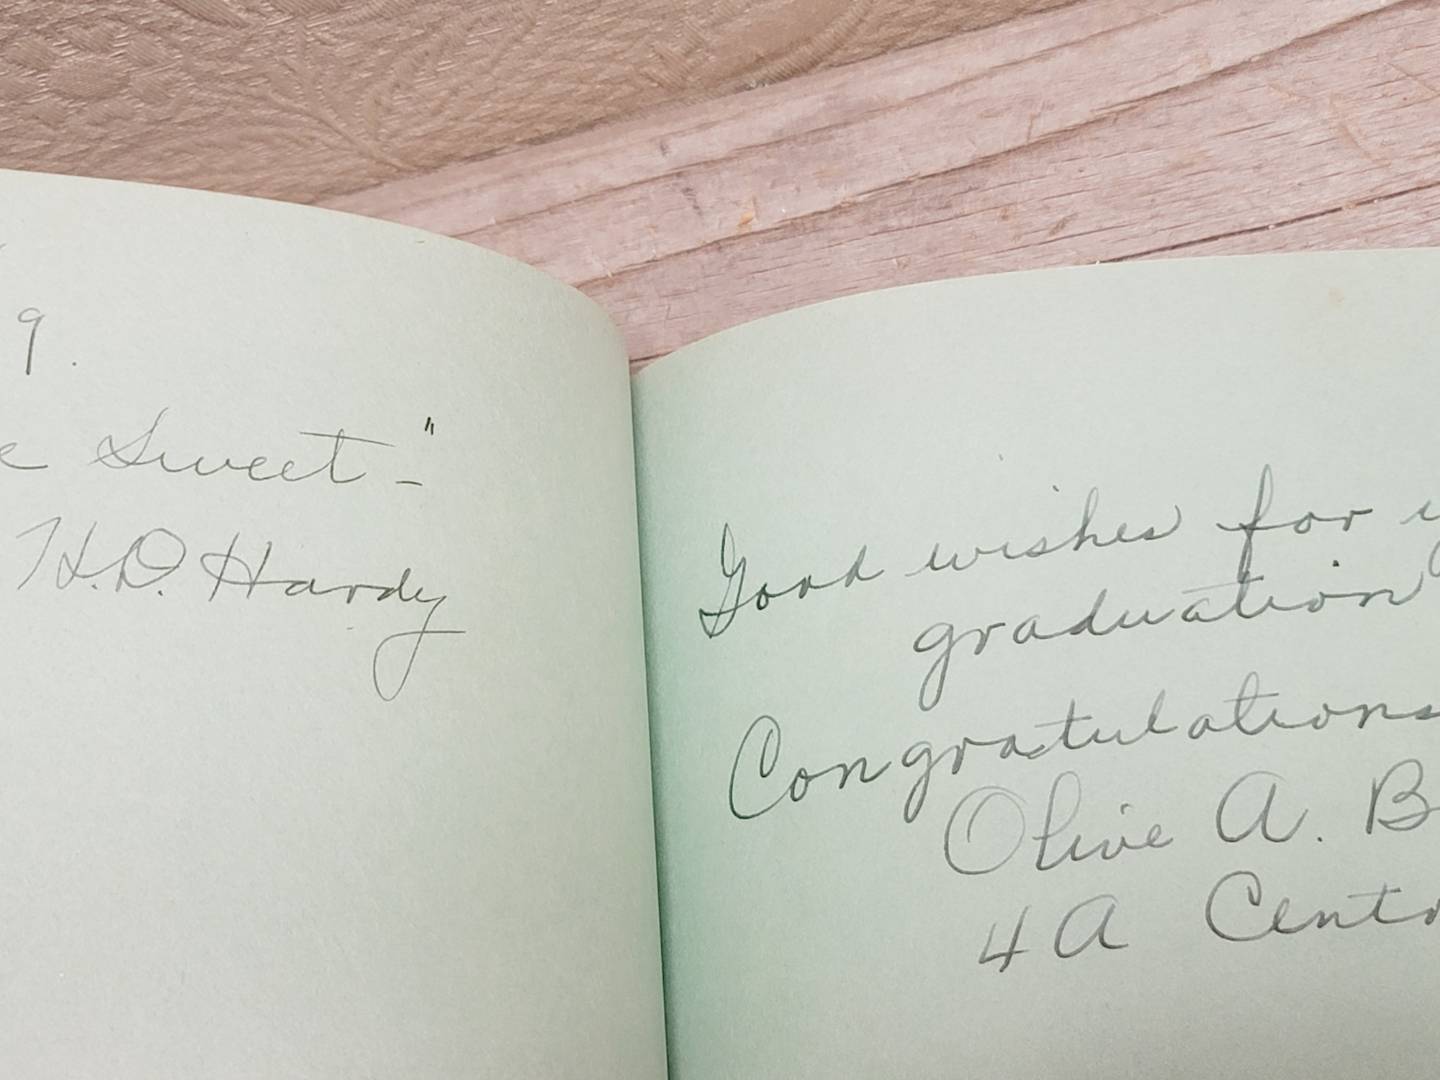 9.
Sweet-"
H.D. Hardy
Good wishes for
graduation
Congratulations
Olive A. B
4A Cent